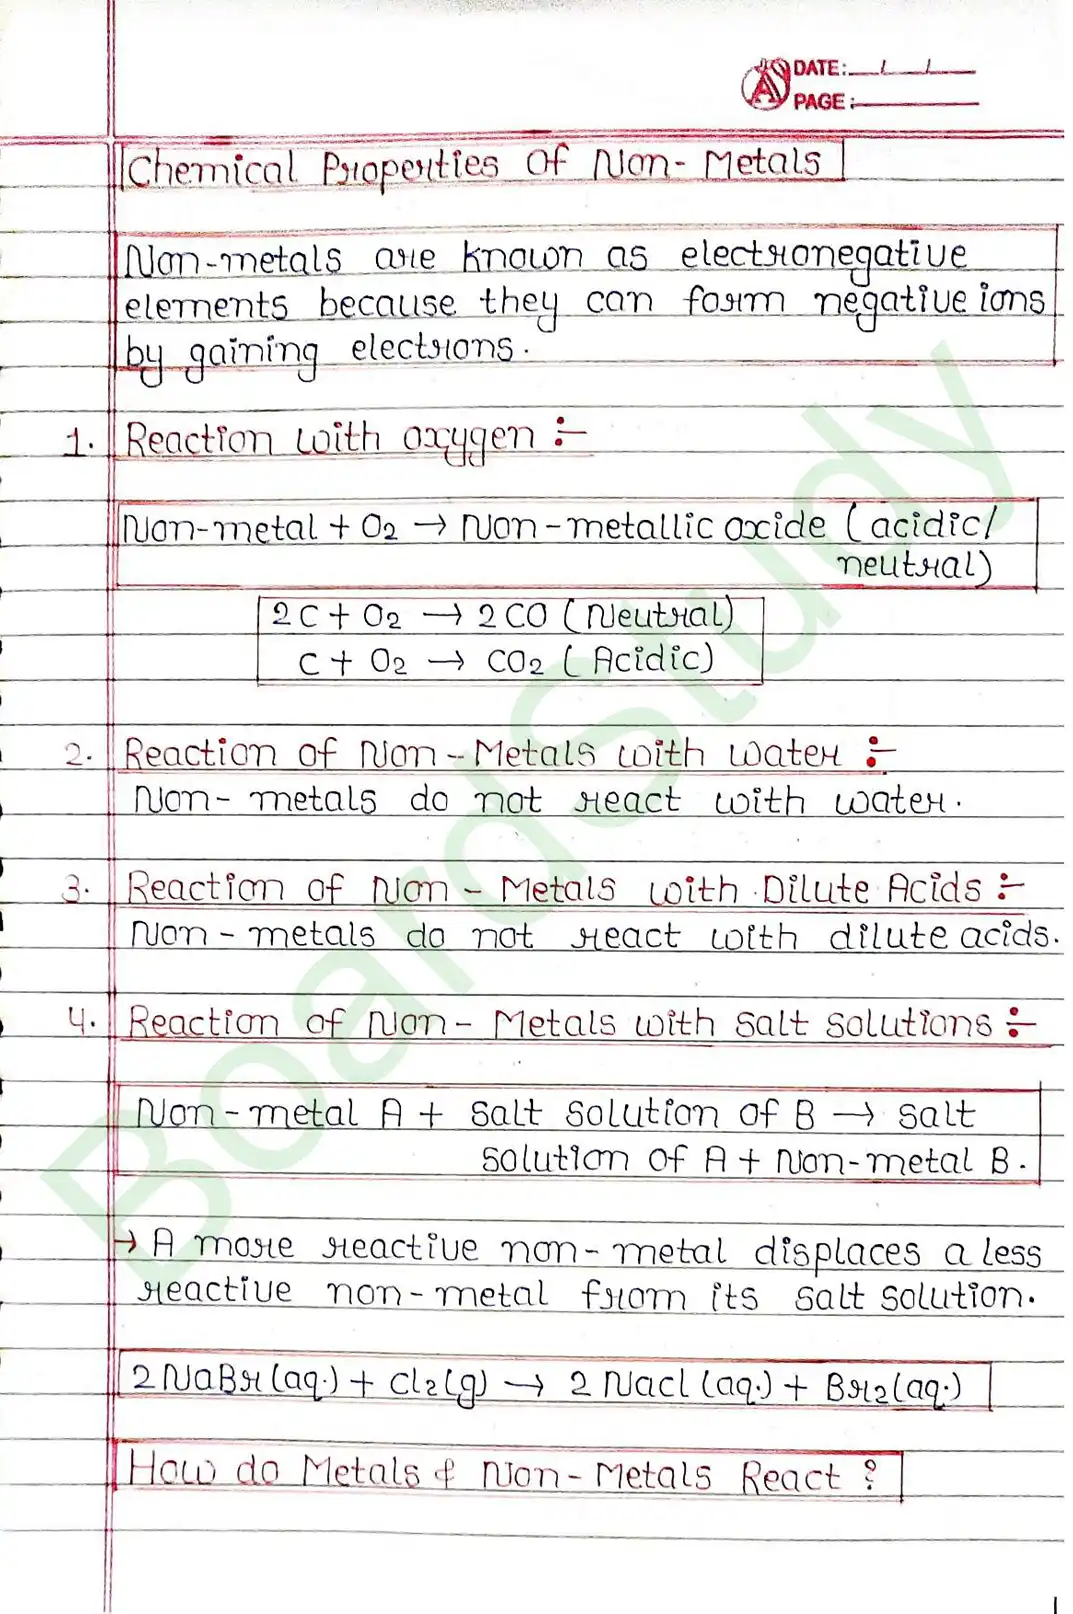 DATE:
PAGE:
Chemical Properties Of Non-Metals
Non-metals are known as electronegative
elements because they can form negative ions
by gaining electrons.
1. Reaction with oxygen :-
Non-metal + O₂ → Non-metallic oxide (acidic/
neutral)
2C + O₂ → 2CO (Neutral)
C + O₂ → CO₂ (Acidic)
2. Reaction of Non-Metals with water :-
Non-metals do not react with water.
3. Reaction of Non-Metals with Dilute Acids :-
Non-metals do not react with dilute acids.
4. Reaction of Non-Metals with salt solutions :-
Non-metal A + salt solution of B → salt
solution of A + Non-metal B.
→ A more reactive non-metal displaces a less
reactive non-metal from its salt solution.
2NaBr(aq.) + Cl₂(g) → 2Nacl(aq.) + Br₂(aq.)
How do Metals & Non-Metals React?
BoardStudy